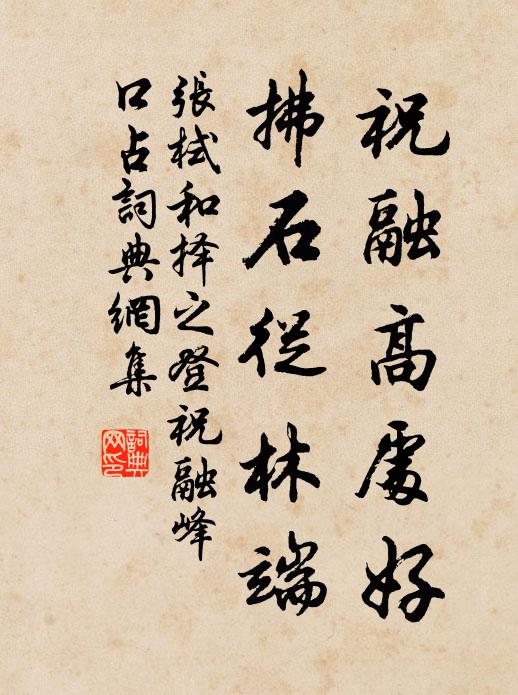 祝融高處好
拂石從林端
張栻和择之登祝融峰
口占詞典網集
詞典
网印